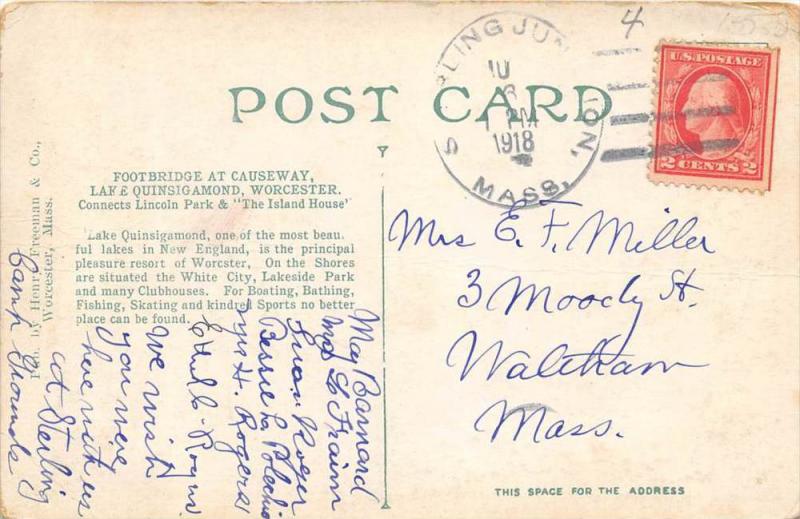 POST CARD
FOOTBRIDGE AT CAUSEWAY,
LAKE QUINSIGAMOND, WORCESTER.
Connects Lincoln Park & "The Island House'
Lake Quinsigamond, one of the most beau
ful lakes in New England, is the principal
pleasure resort of Worcster, On the Shores
are situated the White City, Lakeside Park
and many Clubhouses. For Boating, Bathing,
Fishing, Skating and kindred Sports no better
place can be found.
Pub. by Henry Freeman & Co.,
Worcester, Mass.
We wish
you were
here with us
at Sterling
Camp Grounds
May Barnard
Susan Roger
Bessie
H. Rogers
Ethel
4
LING JUN ION,
1918
MASS.
U.S. POSTAGE
2 CENTS 2
Mrs E. F. Miller
3 Moody St.
Waltham
Mass.
THIS SPACE FOR THE ADDRESS